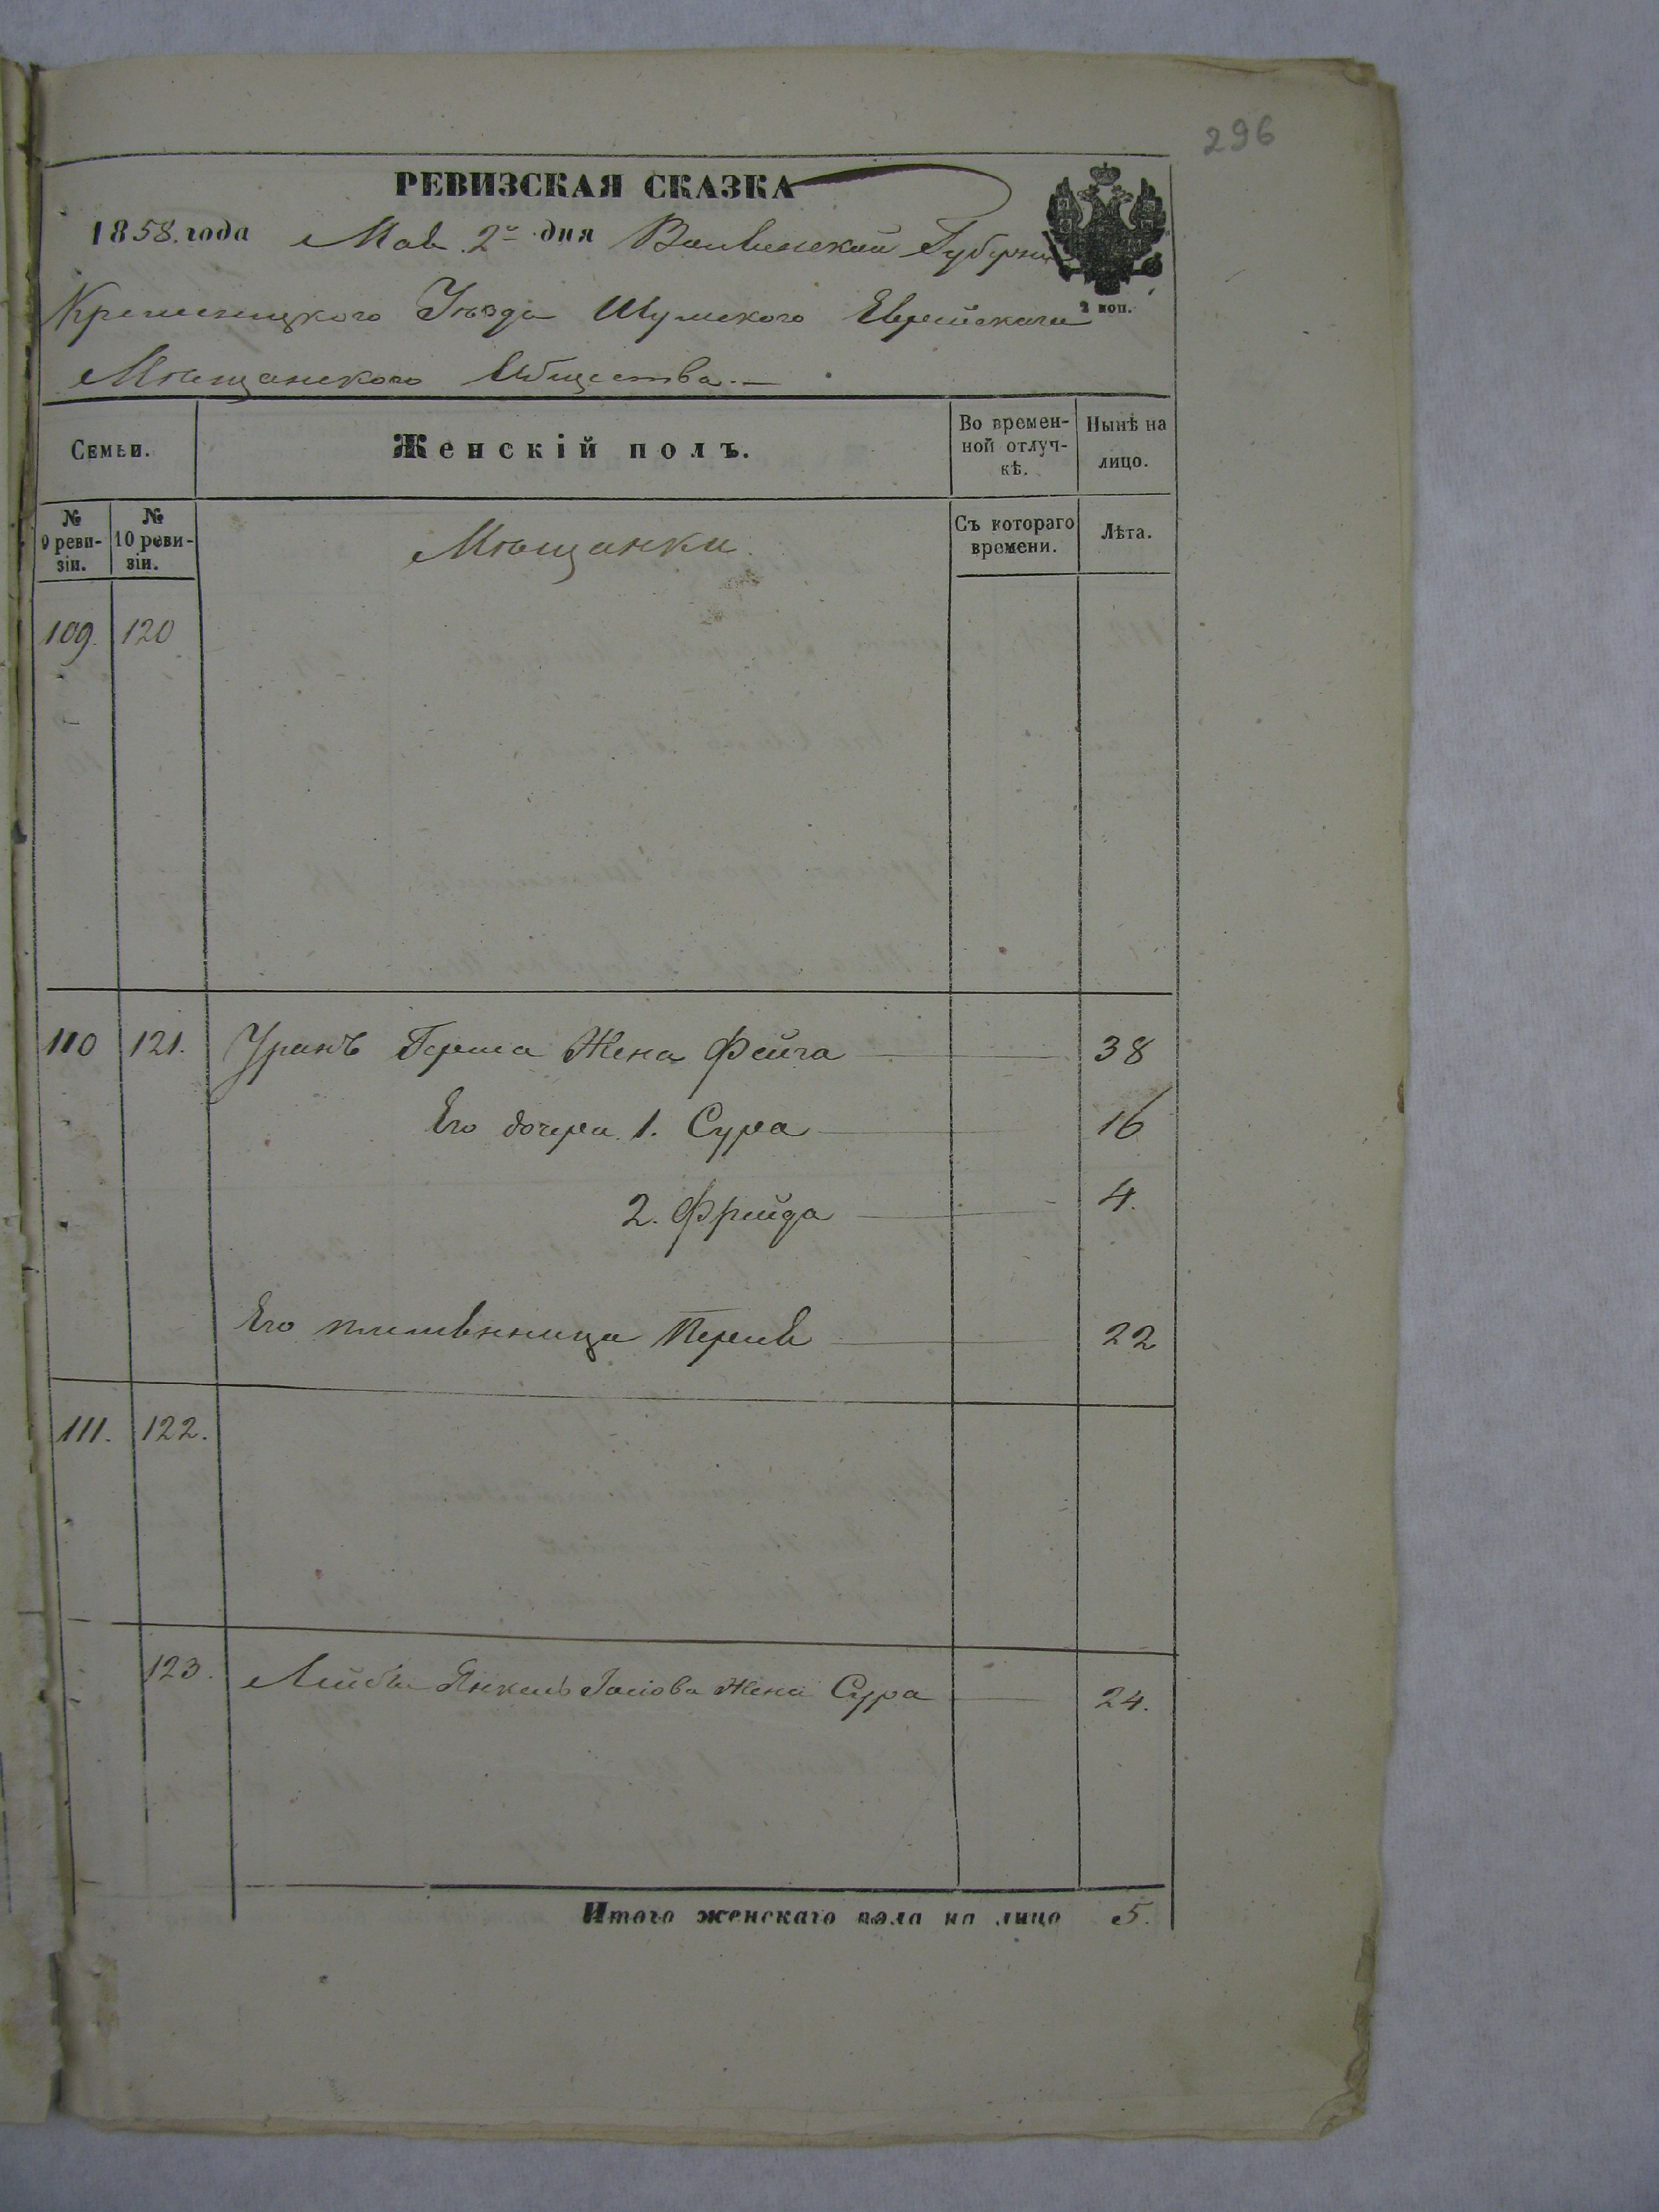 296
РЕВИЗСКАЯ СКАЗКА
1858. года Мая 2го дня Волынской Губерніи
2 коп.
Кременецкого Уѣзда Шумского Еврейскаго
Мѣщанского Общества.—
Семьи. Женскій полъ. Во времен-ной отлуч-кѣ. Нынѣ на лицо.
№ 9 реви-зіи. № 10 реви-зіи. Мѣщанки. Съ котораго времени. Лѣта.
109. 120
110 121. Герша Жена Фейга 38
Его дочери 1. Сура 16
2. Фрейда 4.
Его племянница Перля 22
111. 122.
123. Лейба Янкель жена Сура 24.
Итого женскаго пола на лицо 5.